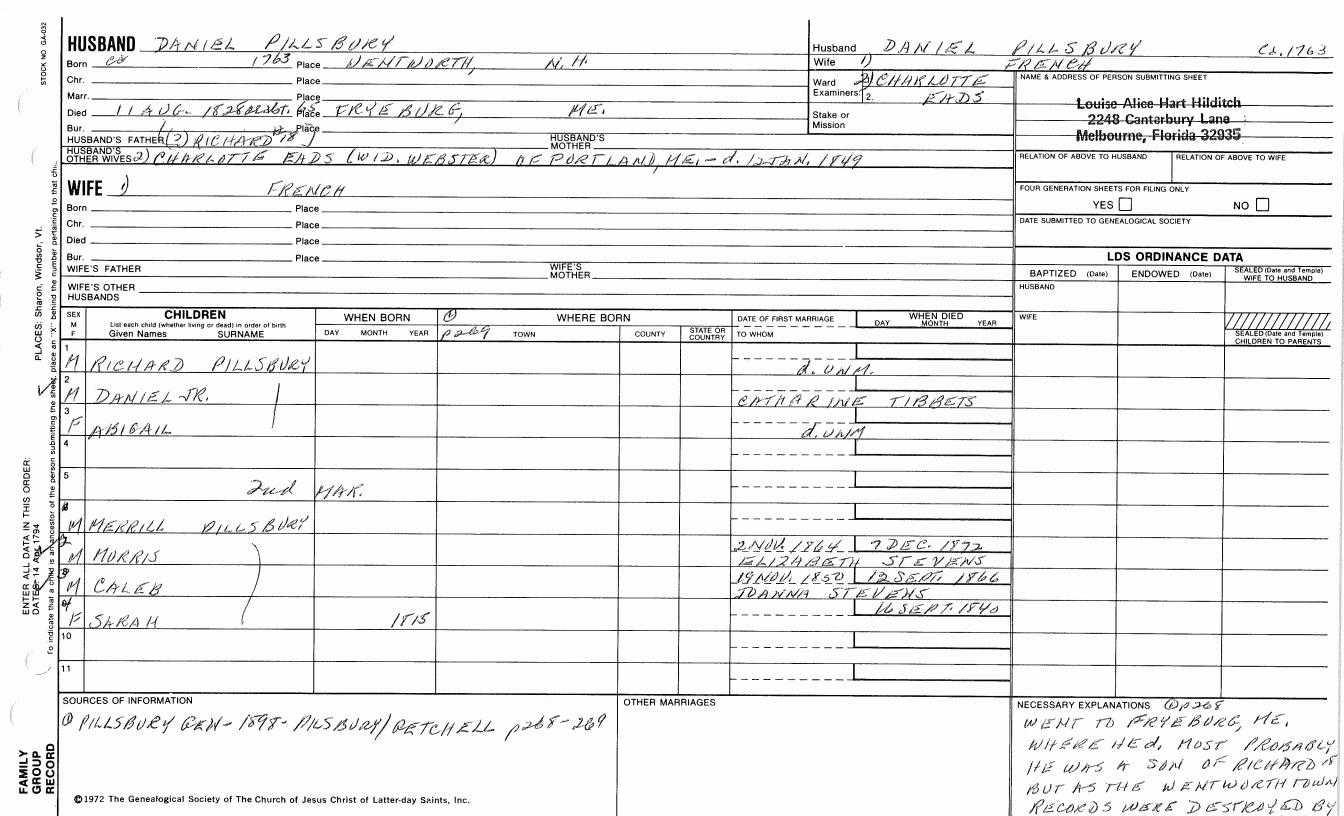 STOCK NO GA-032
HUSBAND DANIEL PILLSBURY
Born ca 1763 Place WENTWORTH, N.H.
Chr. Place
Marr. Place
Died 11 AUG. 1828 65 Place FRYEBURG, ME.
Bur. Place
HUSBAND'S FATHER (?) RICHARD 18 HUSBAND'S MOTHER
HUSBAND'S OTHER WIVES 2) CHARLOTTE EADS (WID. WEBSTER) OF PORTLAND, ME. - d. 12 JAN. 1849
Husband DANIEL PILLSBURY Ca. 1763
Wife 1) FRENCH
Ward 2) CHARLOTTE
Examiners: 2. EADS
Stake or Mission
NAME & ADDRESS OF PERSON SUBMITTING SHEET
Louise Alice Hart Hilditch
2248 Canterbury Lane
Melbourne, Florida 32935
RELATION OF ABOVE TO HUSBAND RELATION OF ABOVE TO WIFE
FOUR GENERATION SHEETS FOR FILING ONLY
YES NO
DATE SUBMITTED TO GENEALOGICAL SOCIETY
WIFE 1) FRENCH
Born Place
Chr. Place
Died Place
Bur. Place
WIFE'S FATHER WIFE'S MOTHER
WIFE'S OTHER HUSBANDS
LDS ORDINANCE DATA
BAPTIZED (Date) ENDOWED (Date) SEALED (Date and Temple) WIFE TO HUSBAND
HUSBAND
WIFE
SEALED (Date and Temple) CHILDREN TO PARENTS
SEX M F
CHILDREN
List each child (whether living or dead) in order of birth
Given Names SURNAME
WHEN BORN
DAY MONTH YEAR
① p269
WHERE BORN
TOWN COUNTY STATE OR COUNTRY
DATE OF FIRST MARRIAGE
TO WHOM
WHEN DIED
DAY MONTH YEAR
1 M RICHARD PILLSBURY d. UNM.
2 M DANIEL JR. CATHARINE TIBBETS
3 F ABIGAIL d. UNM
4
5 2nd MAR.
M MERRILL PILLSBURY
2 M MORRIS 2 NOV. 1864 7 DEC. 1872
ELIZABETH STEVENS
3 M CALEB 19 NOV. 1850 12 SEPT. 1866
JOANNA STEVENS
4 F SARAH 1815 16 SEPT. 1840
10
11
SOURCES OF INFORMATION
① PILLSBURY GEN - 1898 - PILSBURY/GETCHELL p268-269
OTHER MARRIAGES
NECESSARY EXPLANATIONS ① p268
WENT TO FRYEBURG, ME.
WHERE HE d. MOST PROBABLY
HE WAS A SON OF RICHARD 18
BUT AS THE WENTWORTH TOWN
RECORDS WERE DESTROYED BY
©1972 The Genealogical Society of The Church of Jesus Christ of Latter-day Saints, Inc.
FAMILY GROUP RECORD
ENTER ALL DATA IN THIS ORDER:
DATES: 14 Apr 1794
PLACES: Sharon, Windsor, Vt.
To indicate that a child is an ancestor of the person submitting the sheet, place an "X" behind the number pertaining to that